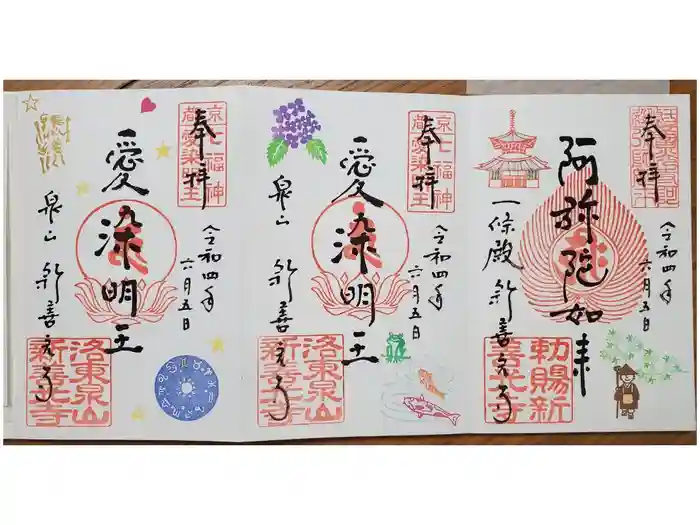 奉拝
令和四年
六月五日
阿弥陀如来
一條殿 新善光寺
勅賜新
善光寺
奉拝
京七福神
都愛染明王
令和四年
六月五日
愛染明王
泉山 新善光寺
洛東泉山
新善光寺
奉拝
京七福神
都愛染明王
令和四年
六月五日
愛染明王
泉山 新善光寺
洛東泉山
新善光寺